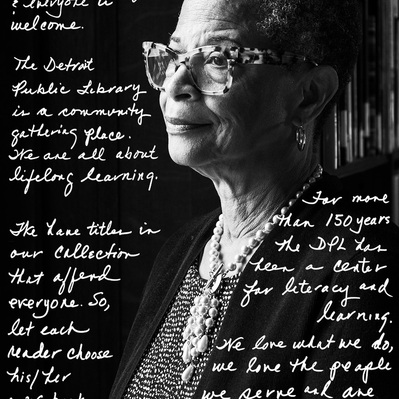 & everyone is
welcome.
The Detroit
Public Library
is a community
gathering place.
We are all about
lifelong learning.
We have titles in
our collection
that offend
everyone. So,
let each
reader choose
his/her
For more
than 150 years
the DPL has
been a center
for literacy and
learning.
We love what we do,
we love the people
we serve and are